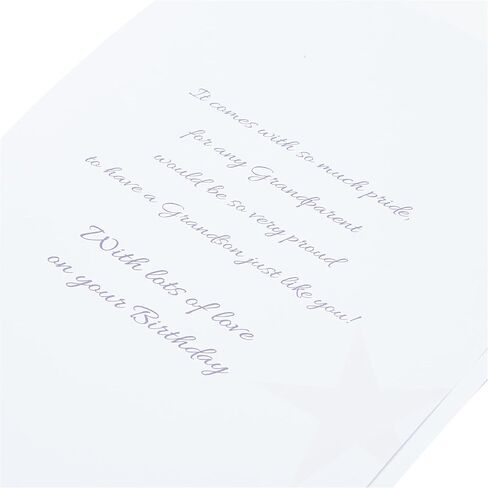 It comes with so much pride,
for any Grandparent
would be so very proud
to have a Grandson just like you!
With lots of love
on your Birthday